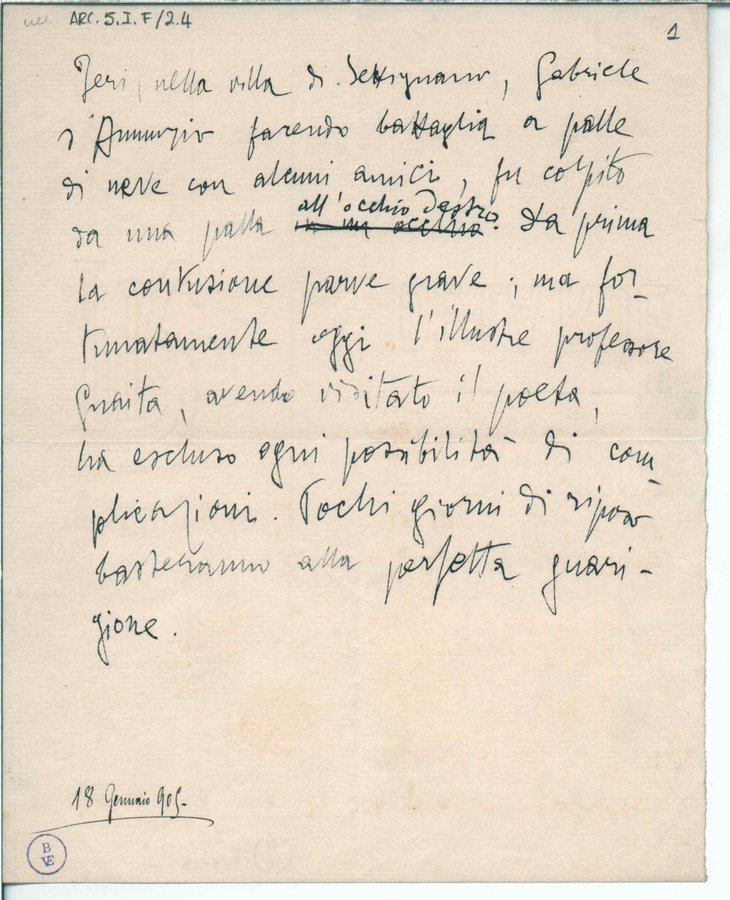 ARC. 5. I. F/2.4
1
Jeri, nella villa di Settignano, Gabriele
d'Annunzio facendo battaglia a palle
di neve con alcuni amici, fu colpito
da una palla all'occhio destro. Da prima
in un occhio
la contusione parve grave; ma for-
tunatamente oggi l'illustre professore
Guaita, avendo visitato il poeta,
ha escluso ogni possibilità di com-
plicazioni. Pochi giorni di riposo
basteranno alla perfetta guari-
gione.
18 Gennaio 905-
B
VE